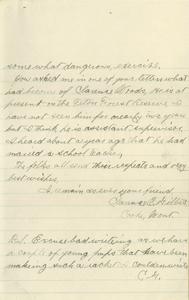 some what dangerous, exercise.
You asked me in one of your letters what
had become of Clarence Woods, He is at
present on the Teton Forest Reserve I
have not seen him for nearly two years
but I think he is assistant supervisor.
I heard about a year ago that he had
married a school teacher.
The folks all send their regards and very
best wishes
I remain as ever your friend,
Cooke, Mont.
P.S. Excuse bad writing as we have
a couple of young pups that have been
making such a racket I couldn't write
C. G.